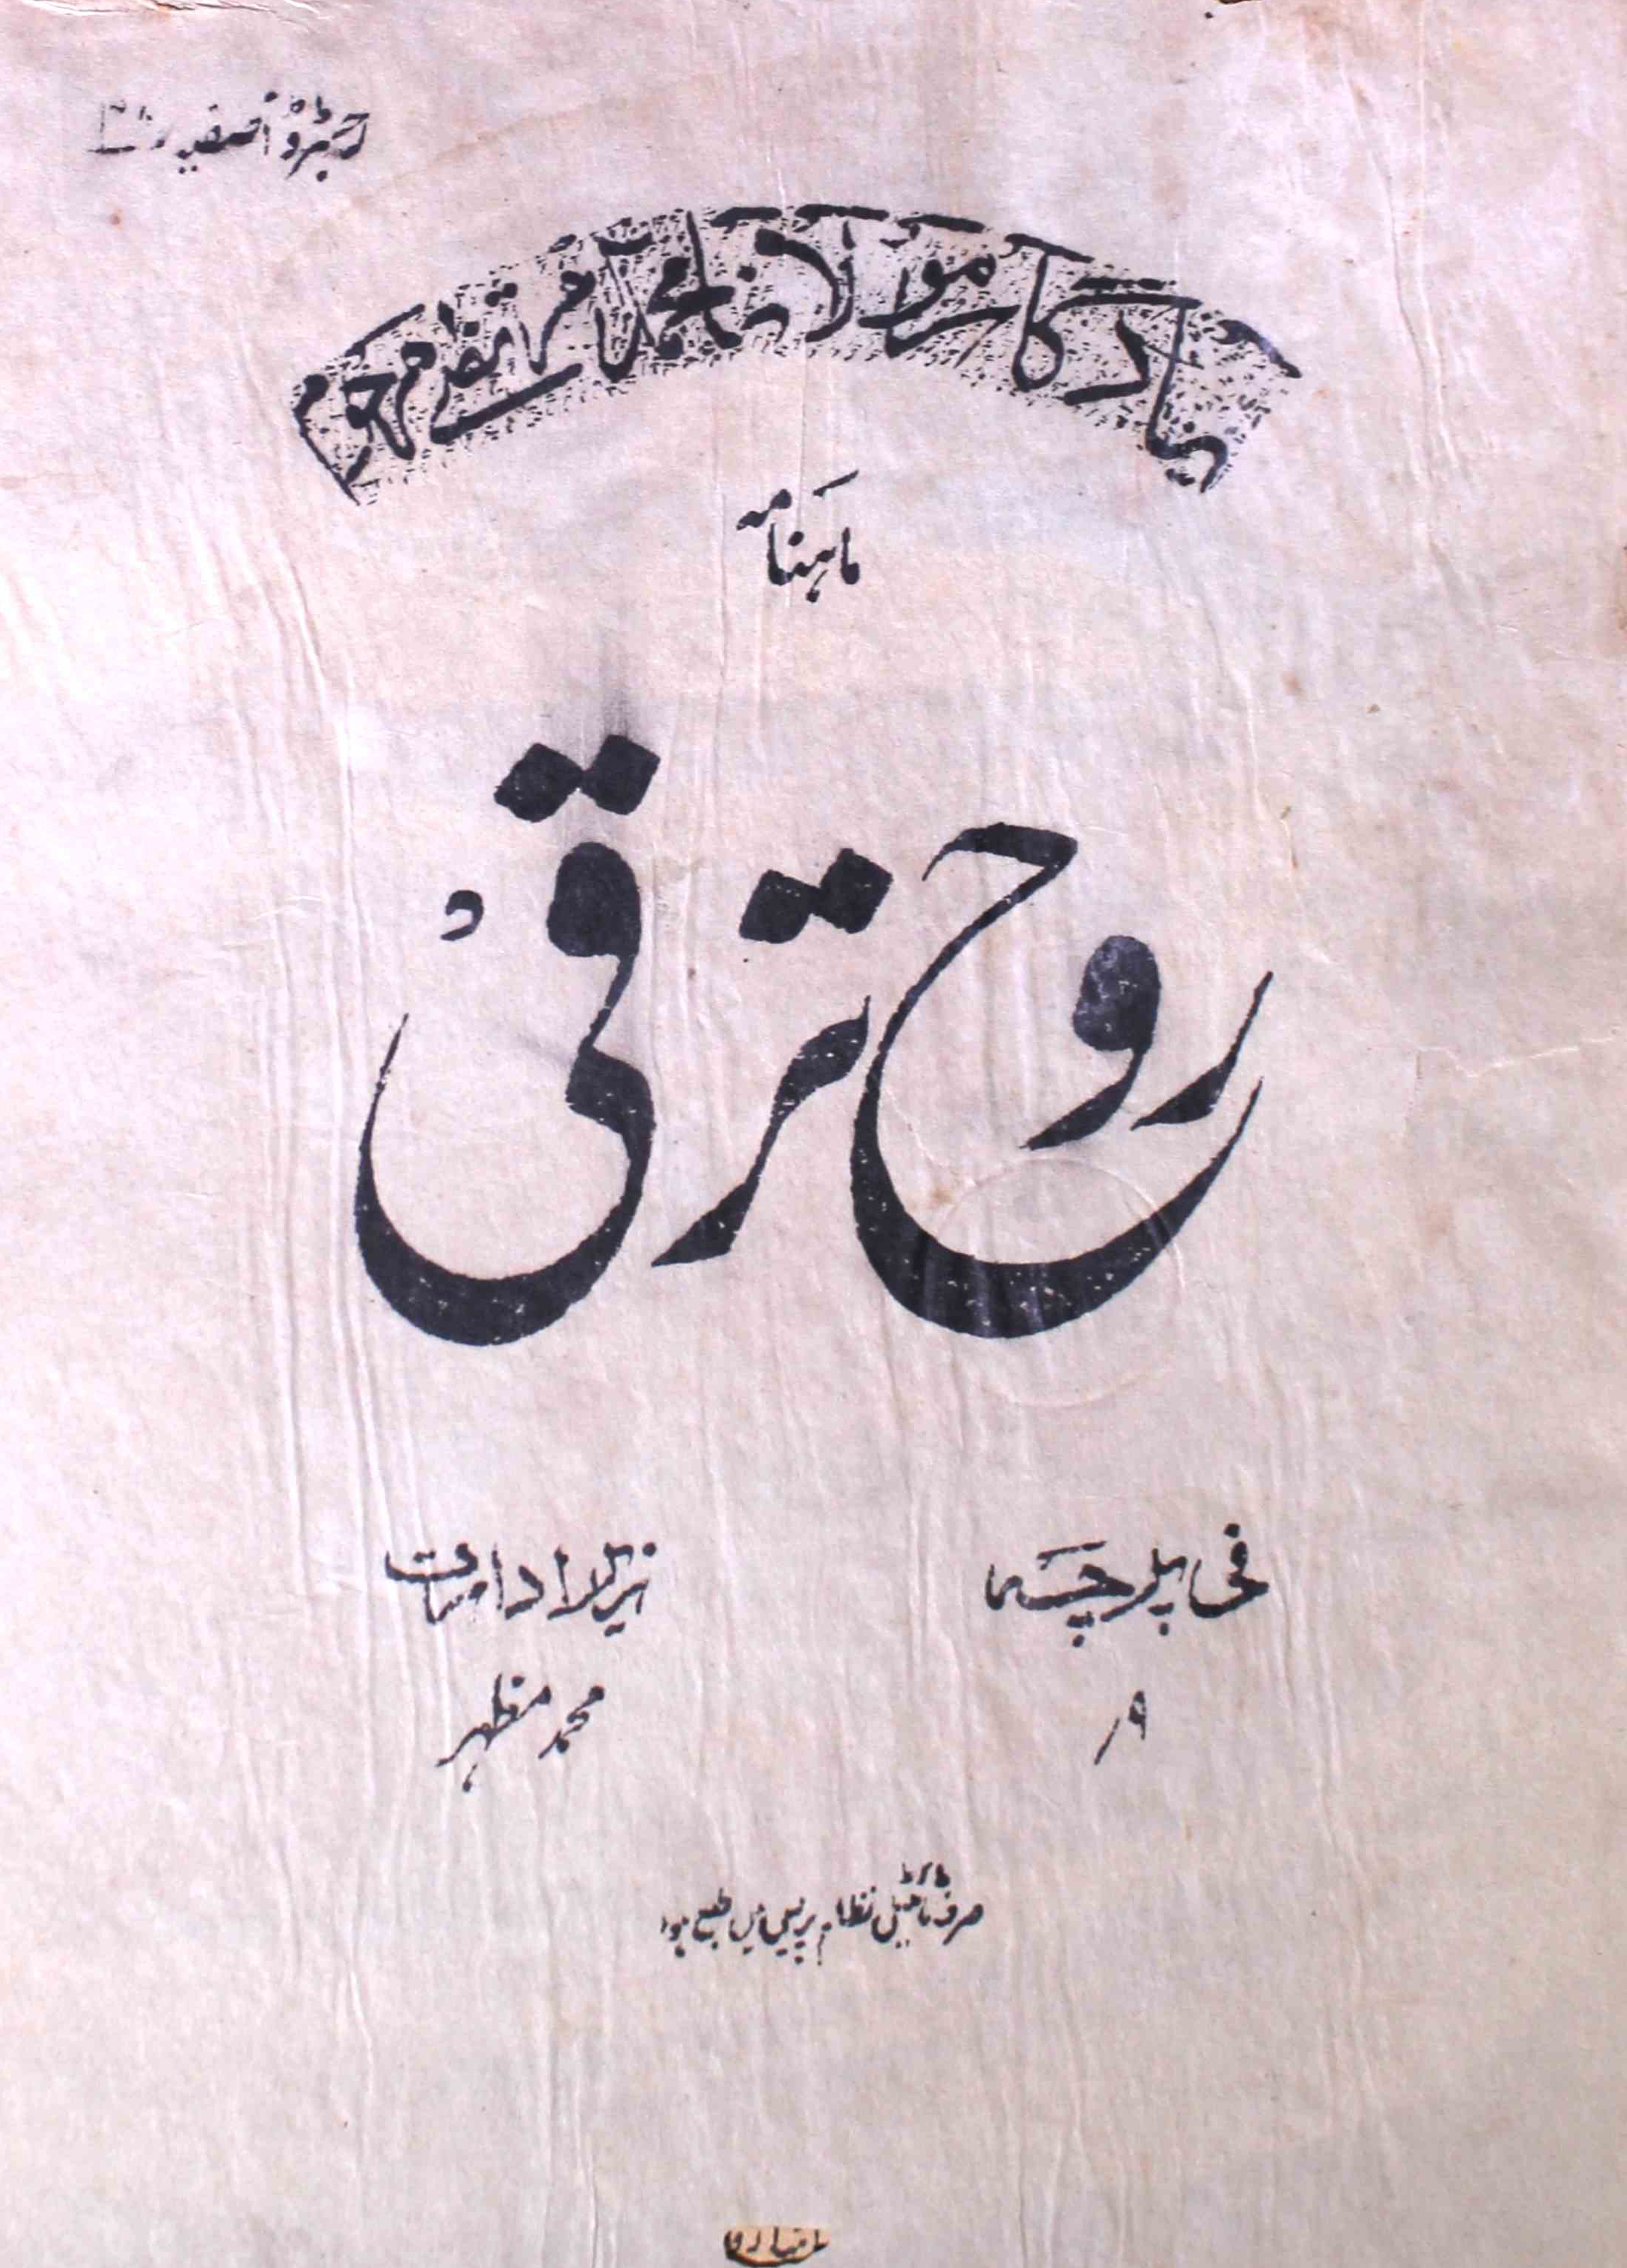 رجسٹرڈ آصفیہ
یادگار مولانا محمد مرتضےٰ مرحوم
ماہنامہ
روح ترقی
فی پرچہ
۹/
زیر ادارت
محمد مظہر
صرف ٹائٹیل نظام پریس میں طبع ہوا